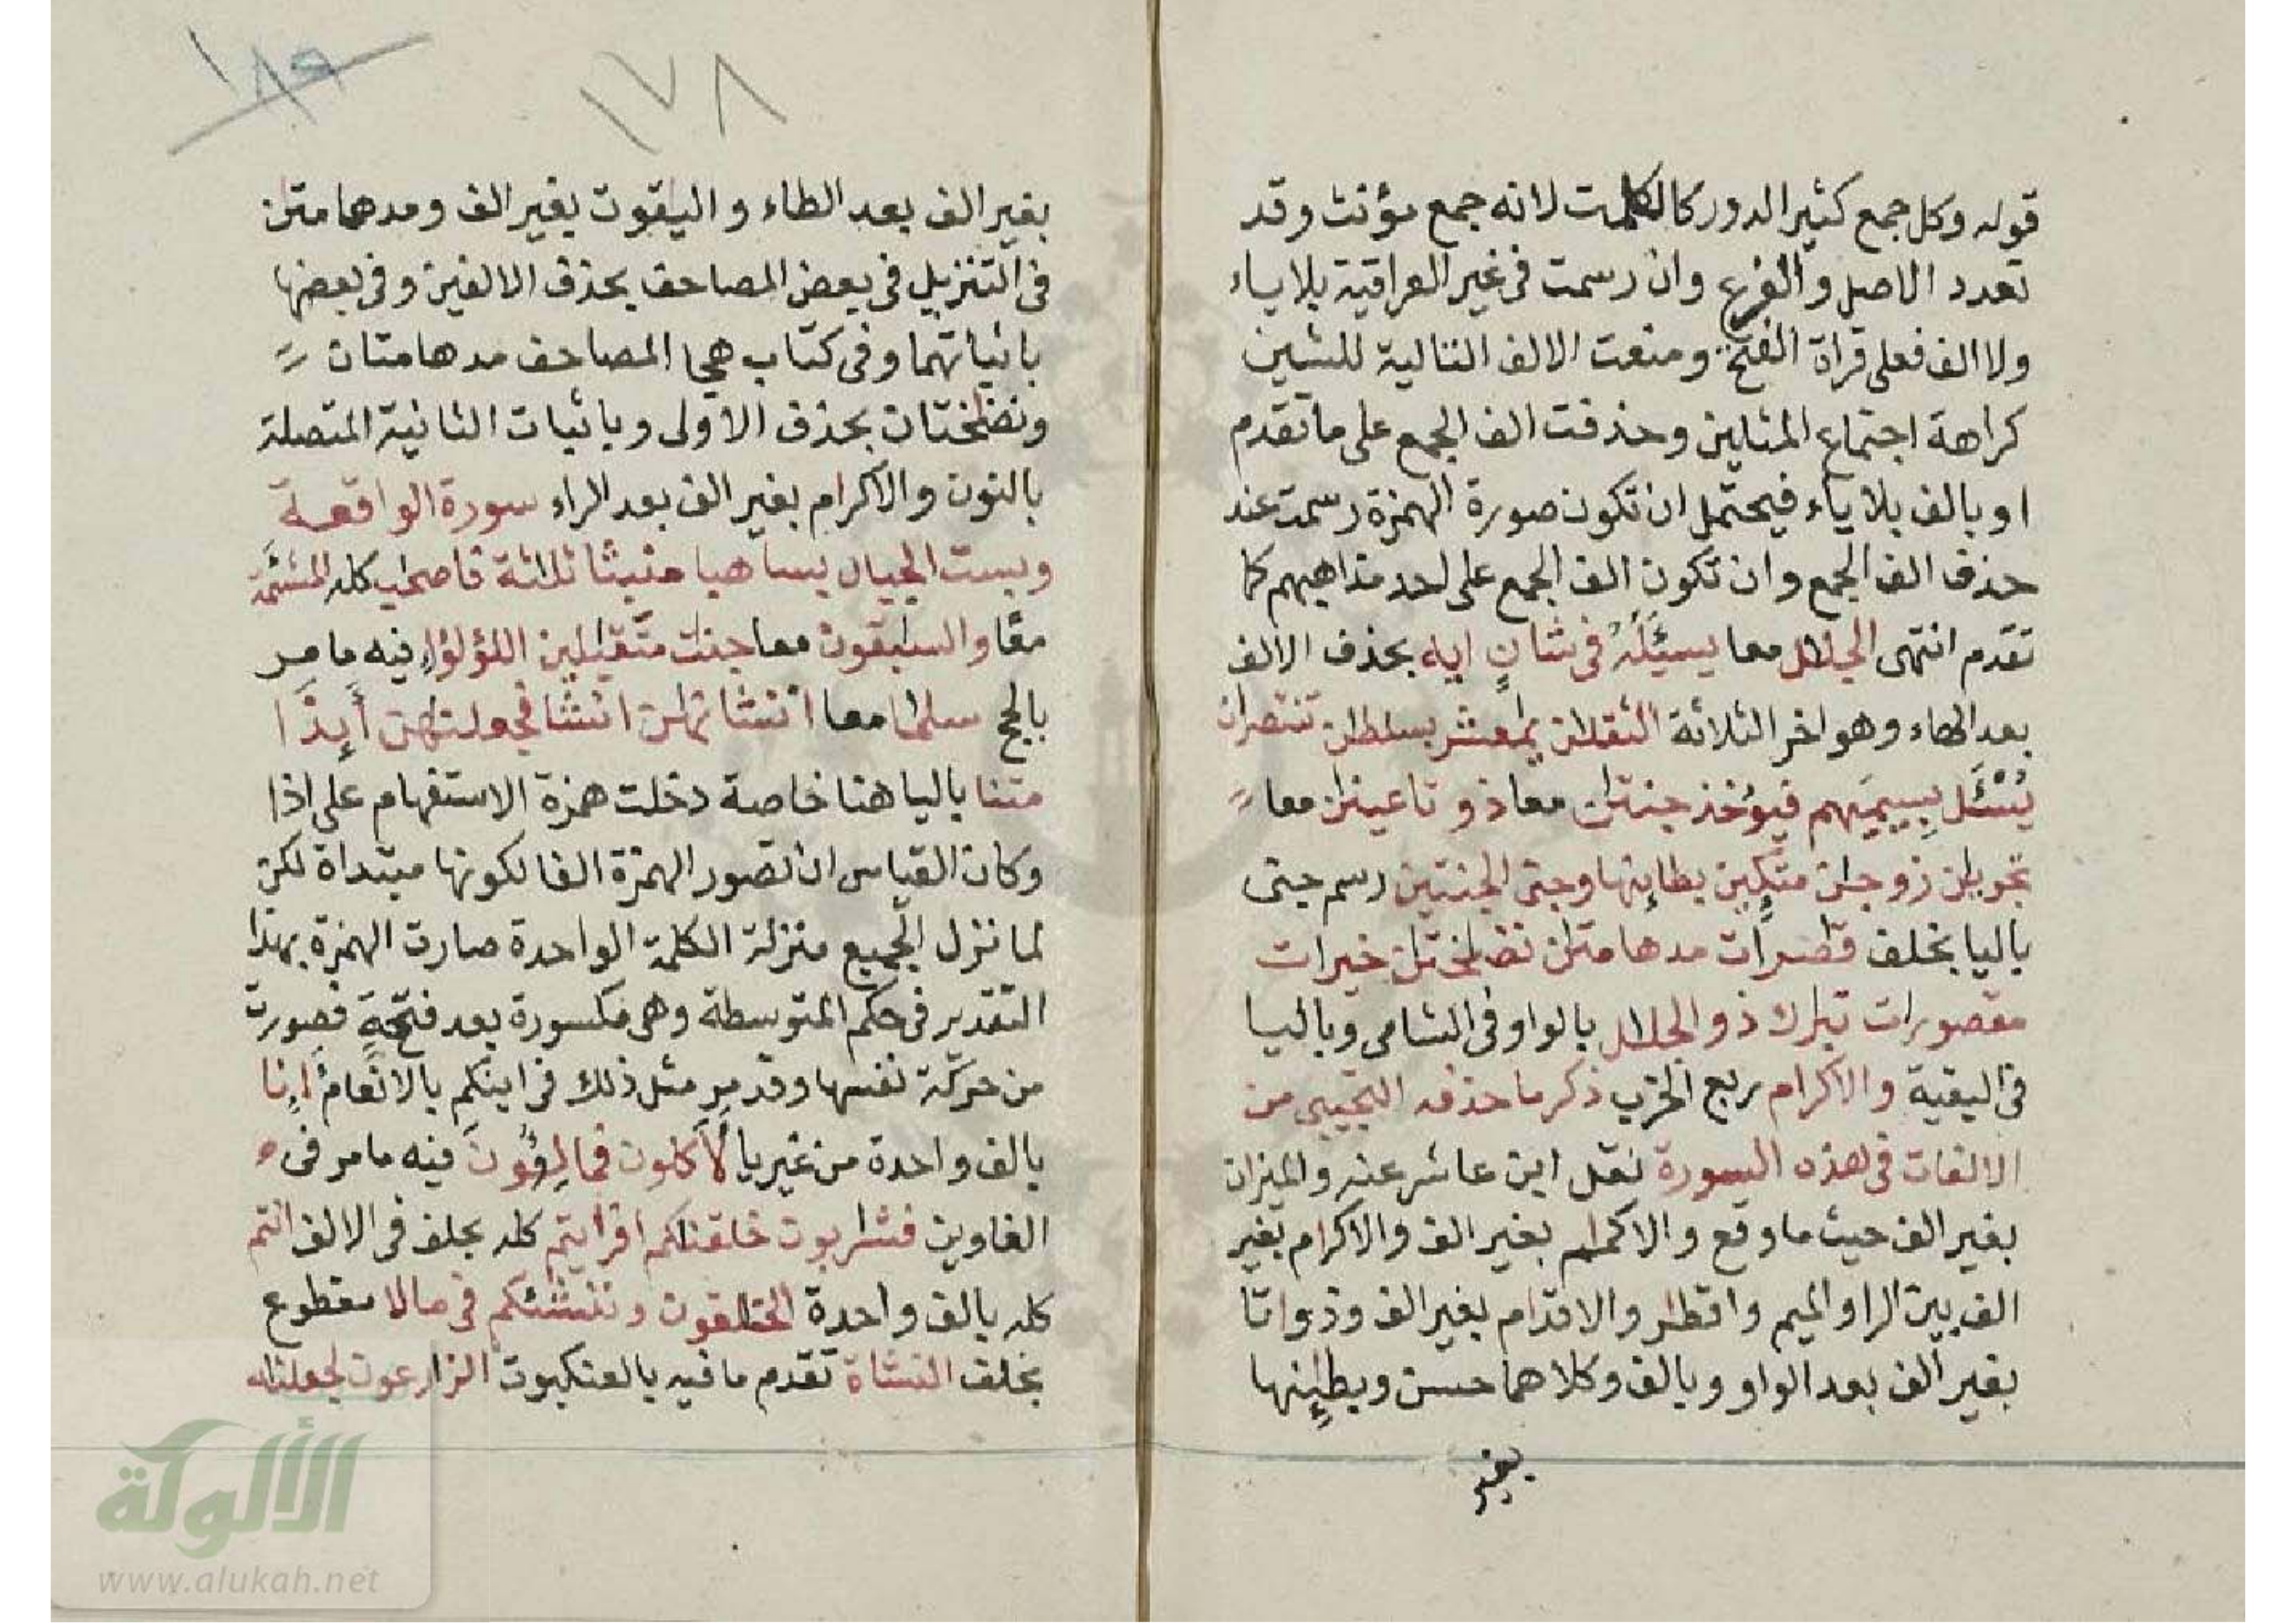 قوله وكل جمع كثير الدور كالكلمت لانه جمع مؤنث وقد
تعدد الاصل والفرع وان رسمت فى غير العراقية بلا ياء
ولا الف فعلى قراة الفتح ومنعت الالف التالية للشين
كراهة اجتماع المثلين وحذفت الف الجمع على ما تقدم
او بالف بلا ياء فيحتمل ان تكون صورة الهمزة رسمت عند
حذف الف الجمع وان تكون الف الجمع على احد مذاهبهم كما
تقدم انتهى الجلل معا يسئله فى شان ايه بحذف الالف
بعد الهاء وهو اخر الثلاثة الثقلن يمعشر بسلطن تنتصران
يسئل بسيميهم فيؤخذ جنتن معا ذواتا عينن معا
تجرين زوجن متكين بطاينها وجنى الجنتين رسم جنى
باليا بخلف قصرات مدهامتن نضاختن خيرات
مقصورات تبرك ذو الجلل بالواو فى الشامى وباليا
فى البقية والاكرام ربع الحزب ذكر ما حذفه التجيبى من
الالفات فى هذه السورة نقل ابن عاشر عنه والميزان
بغير الف حيث ما وقع والاكمم بغير الف والاكرام بغير
الف بين الرا والميم واقطر والاقدام بغير الف وذواتا
بغير الف بعد الواو وبالف وكلاهما حسن وبطينها
بغير
١٧٨
١٨٩
بغير الف بعد الطاء واليقوت بغير الف ومدهامتن
فى التنزيل فى بعض المصاحف بحذف الالفين وفى بعضها
باثباتهما وفى كتاب هجا المصاحف مدهامتان
ونضختان بحذف الاولى وباثبات الثانية المتصلة
بالنون والاكرام بغير الف بعد الراء سورة الواقعة
وبست الجبال بسا هبا منبثا ثلثة فاصحب كله المشئمة
معا والسبقون معا جنت متقبلين اللؤلؤ فيه ما مر
بالحج سلما معا انشانهن انشا فجعلنهن أيذا
متنا باليا هنا خاصة دخلت همزة الاستفهام على اذا
وكان القياس ان تصور الهمزة الفا لكونها مبتداة لكن
لما نزل الجميع منزلة الكلمة الواحدة صارت الهمزة بهذا
التقدير فى حكم المتوسطة وهى مكسورة بعد فتحة فصورت
من حركة نفسها وقد مر مثل ذلك فى اينكم بالانعام أنا
بالف واحدة من غير يا لأكلون فمالئون فيه ما مر فى
الغاوين فشاربون خلقنكم افرايتم كله بخلف فى الالف انتم
كله بالف واحدة الخلقون وننشئكم فى ما لا مقطوع
بخلف النشاة تقدم ما فيه بالعنكبوت الزارعون لجعلنه
الألوكة
www.alukah.net